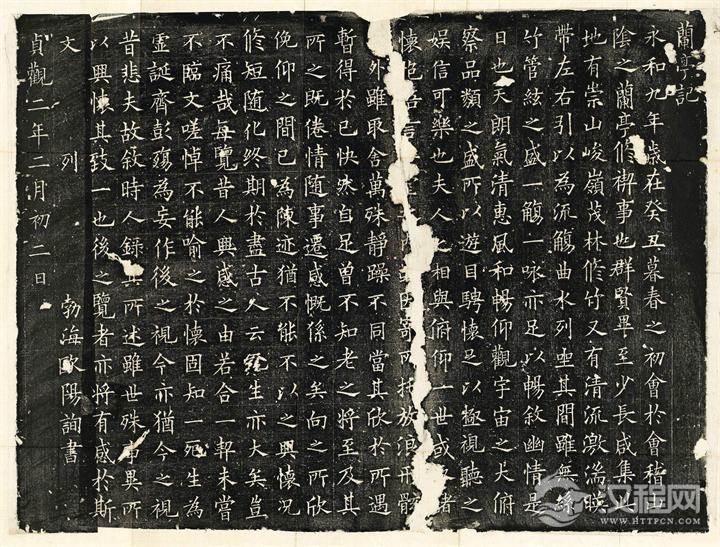 蘭亭記
永和九年歲在癸丑暮春之初會於會稽山
陰之蘭亭脩禊事也群賢畢至少長咸集此
地有崇山峻嶺茂林脩竹又有清流激湍暎
帶左右引以為流觴曲水列坐其間雖無絲
竹管絃之盛一觴一咏亦足以暢敘幽情是
日也天朗氣清惠風和暢仰觀宇宙之大俯
察品類之盛所以遊目騁懷足以極視聽之
娛信可樂也夫人之相與俯仰一世或諸
懷抱言因寄所托放浪形骸
外雖取舍萬殊靜躁不同當其欣於所遇
暫得於己快然自足曽不知老之將至及其
所之既倦情随事遷感慨係之矣向之所欣
俛仰之間已為陳迹猶不能不以之興懷況
脩短随化終期於盡古人云死生亦大矣豈
不痛哉每覽昔人興感之由若合一契未嘗
不臨文嗟悼不能喻之於懷固知一死生為
虛誕齊彭殤為妄作後之視今亦猶今之視
昔悲夫故敘時人録其所述雖世殊事異所
以興懷其致一也後之覽者亦將有感於斯
文列
貞觀二年二月初二日 勃海歐陽詢書
文程网
WWW.HTTPCN.COM